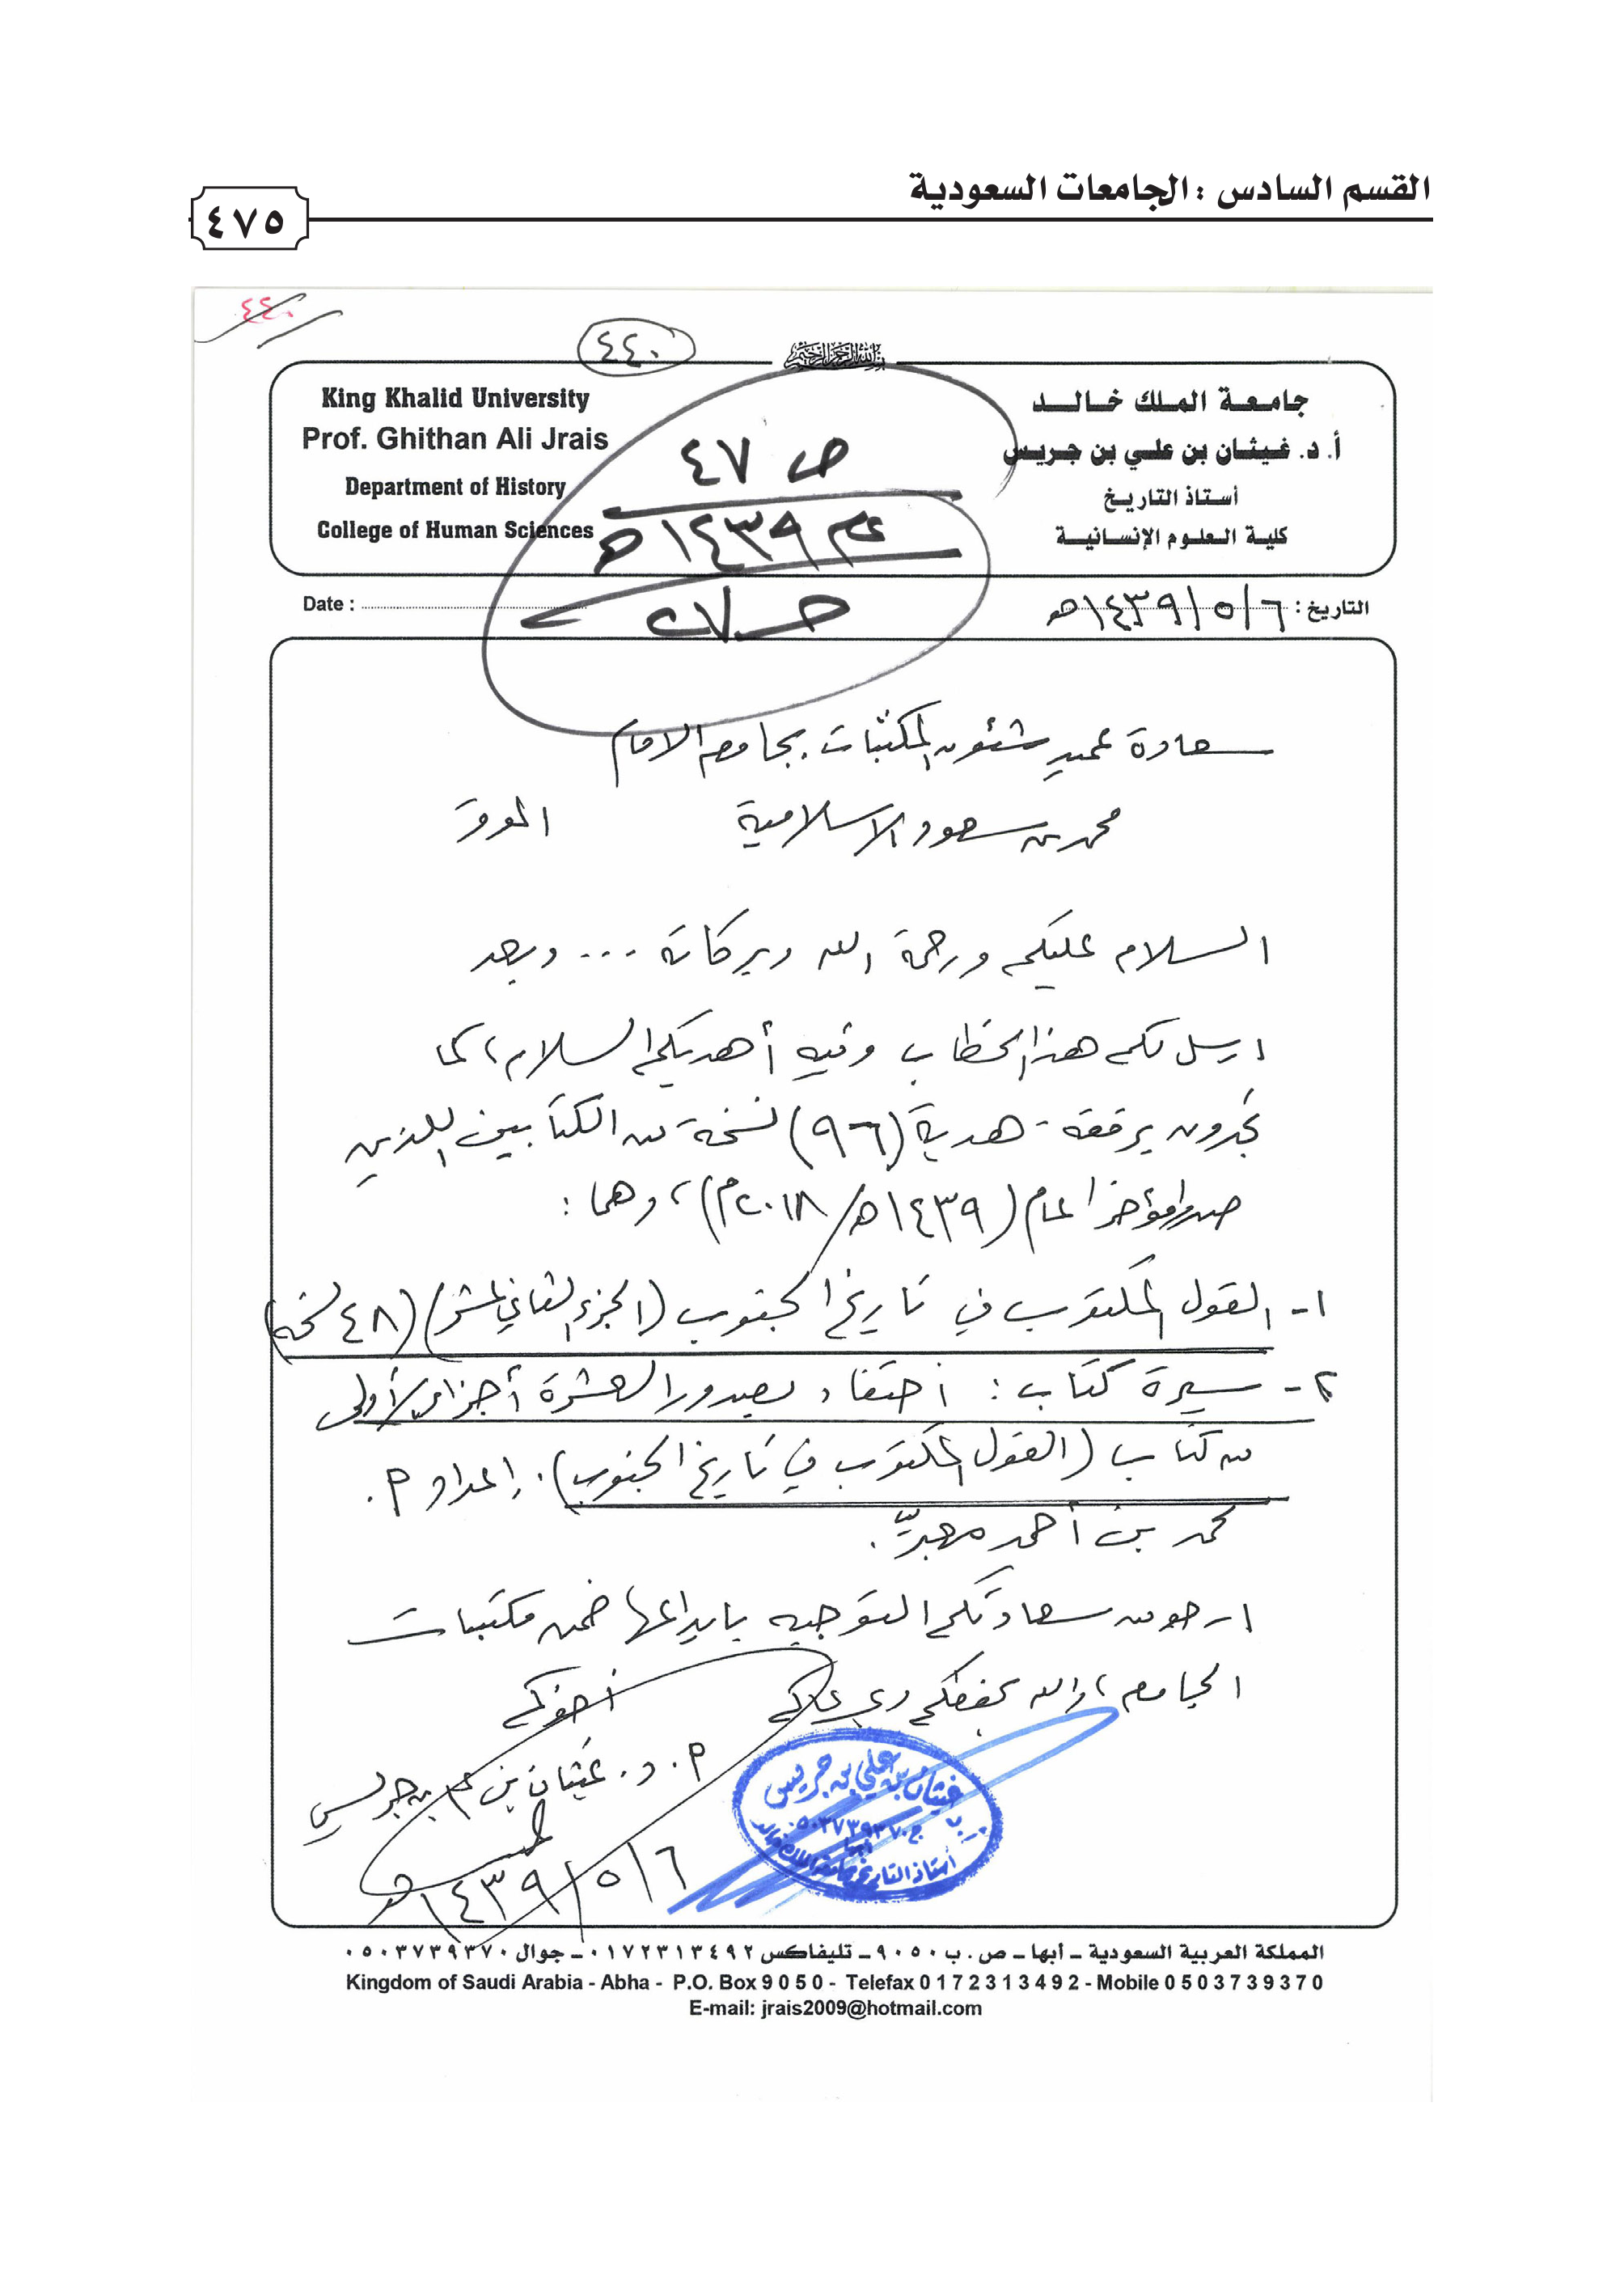 القسم السادس : الجامعات السعودية
٤٧٥
٤٤٠
٤٤٠
جامعة الملك خالد
أ. د. غيثان بن علي بن جريس
أستاذ التاريخ
كلية العلوم الإنسانية
King Khalid University
Prof. Ghithan Ali Jrais
Department of History
College of Human Sciences
ص ٤٧
عام ١٤٣٩هـ
التاريخ : ٦/٥/١٤٣٩هـ
Date :
سعادة عميد شئون المكتبات بجامعة الامام
محمد بن سعود الاسلامية الموقر
السلام عليكم ورحمة الله وبركاته ... وبعد
ارسل لكم هذا الخطاب وفيه أهديكم السلام، كما
تجدون برفقه هدية (٩٦) نسخة من الكتابين اللذين
صدرا مؤخرا عام (١٤٣٩هـ/٢٠١٨م)، وهما :
١- القول المكتوب في تاريخ الجنوب (الجزء الثاني عشر) (٤٨ نسخة)
٢- سيرة كتاب : احتفاء بصدور العشرة أجزاء الأولى
من كتاب (القول المكتوب في تاريخ الجنوب). إعداد م.
محمد بن أحمد معبر.
ارجو من سعادتكم التوجيه بايداعها ضمن مكتبات
الجامعة، والله يحفظكم ويرعاكم
أخوكم
أ. د. غيثان بن علي بن جريس
٦/٥/١٤٣٩هـ
غيثان بن علي بن جريس
ج ٠٥٠٣٧٣٩٣٧٠
أبها
أستاذ التاريخ بجامعة الملك خالد
المملكة العربية السعودية – أبها – ص . ب ٩٠٥٠ – تليفاكس ٠١٧٢٣١٣٤٩٢ – جوال ٠٥٠٣٧٣٩٣٧٠
Kingdom of Saudi Arabia - Abha - P.O. Box 9 0 5 0 - Telefax 0 1 7 2 3 1 3 4 9 2 - Mobile 0 5 0 3 7 3 9 3 7 0
E-mail: jrais2009@hotmail.com